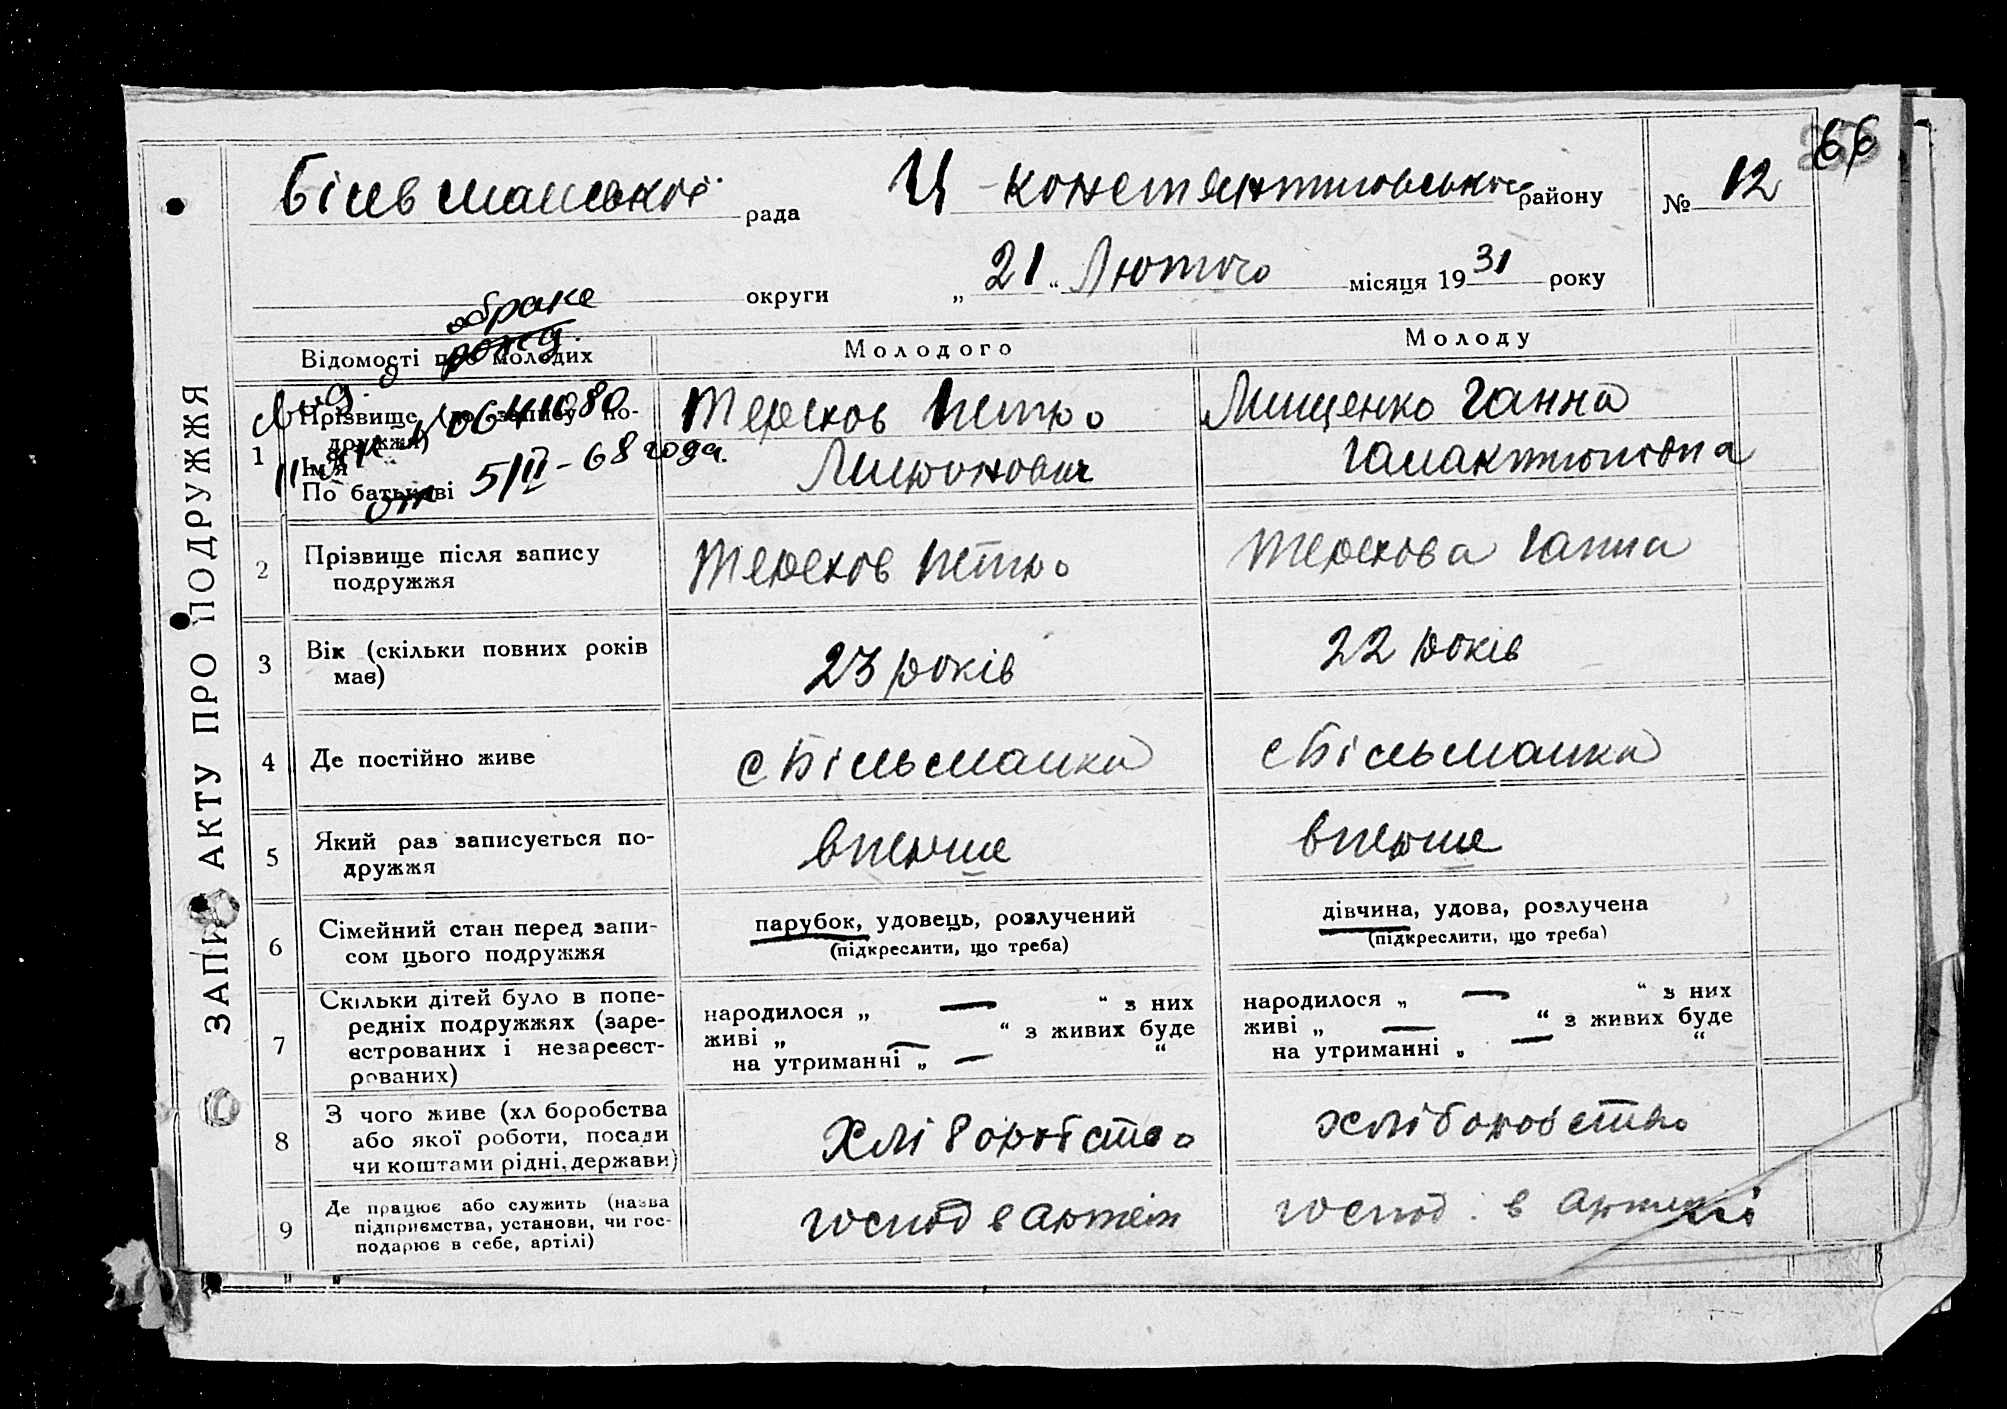 66
Більманської рада Ц-Константиновського району № 12
округи „21“ Лютого місяця 1931 року
о браке
рожд.
Відомості про молодих Молодого Молоду
ЗАПИС АКТУ ПРО ПОДРУЖЖЯ
Вид. о
№ 0641080
от 5/II-68 года.
1 Прізвище (до запису подружжя) Терехов Петро Мищенко Ганна
Ім'я
По батькові Миронович Галактионовна
2 Прізвище після запису Терехов Петро Терехова Ганна
подружжя
3 Вік (скільки повних років 23 років 22 років
має)
4 Де постійно живе с Більманка с Більманка
5 Який раз записується по- вперше вперше
дружжя
6 Сімейний стан перед запи- парубок, удовець, розлучений дівчина, удова, розлучена
сом цього подружжя (підкреслити, що треба) (підкреслити, що треба)
7 Скільки дітей було в попе- народилося „ — “ з них народилося „ — “ з них
редніх подружжях (заре- живі „ — “ з живих буде живі „ — “ з живих буде
єстрованих і незареєст- на утриманні „ — “ на утриманні „ — “
рованих)
8 З чого живе (хл боробства Хліборобство хліборобство
або якої роботи, посади
чи коштами рідні, держави)
9 Де працює або служить (назва господ в артілі господ. в артілі
підприємства, установи, чи гос-
подарює в себе, артілі)